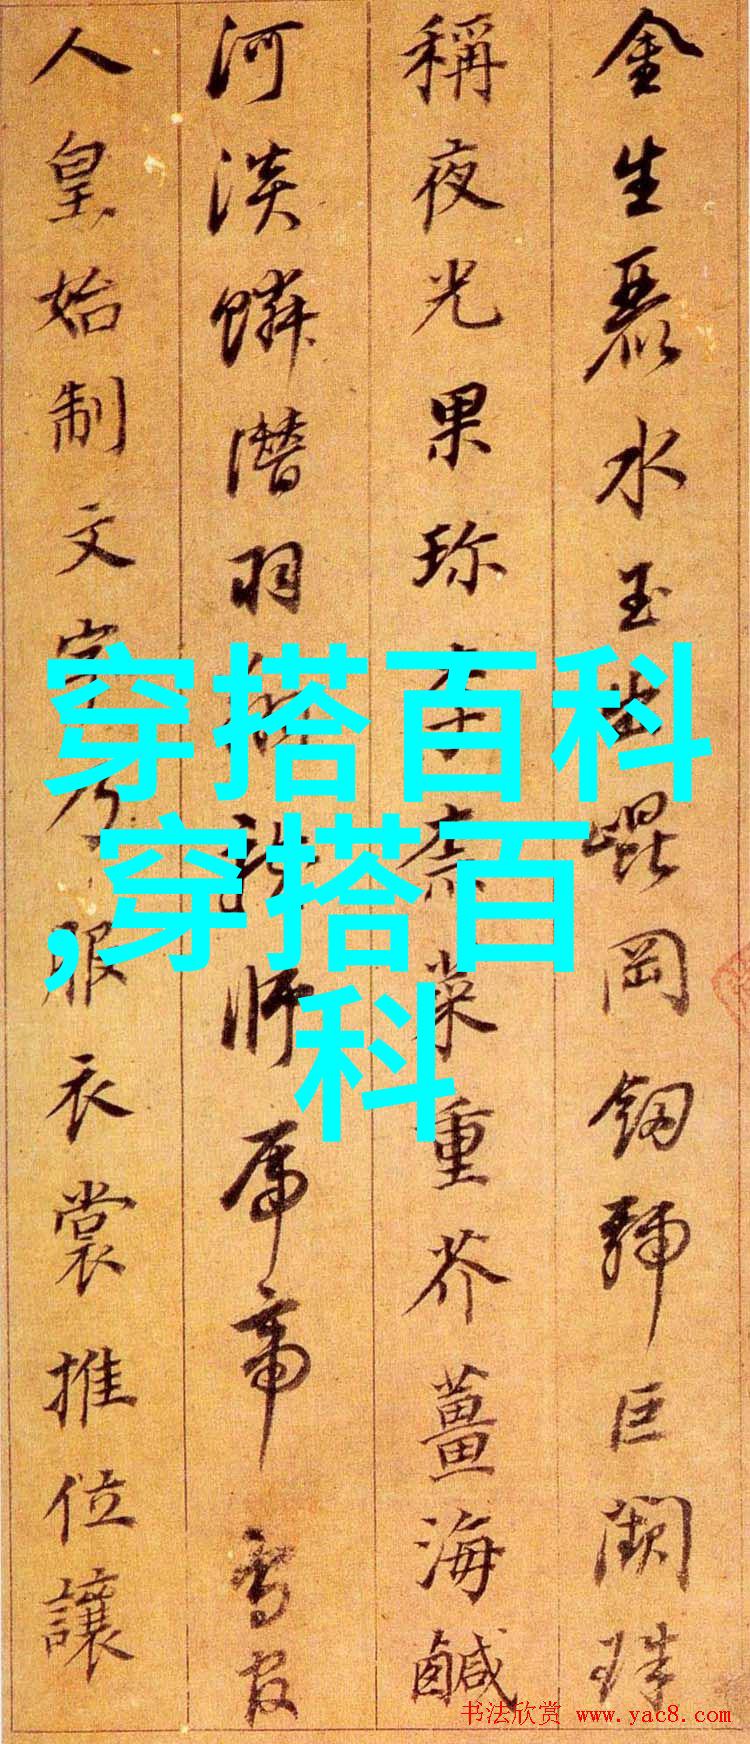 金生麗水玉出崐岡劒號巨闕珠
稱夜光果珎李柰菜重芥薑海鹹
河淡鱗潜羽翔龍師帝鳥官
人皇始制文字乃服衣裳推位讓
穿搭百科
,穿搭百
科
书法欣赏 www.yac8.com